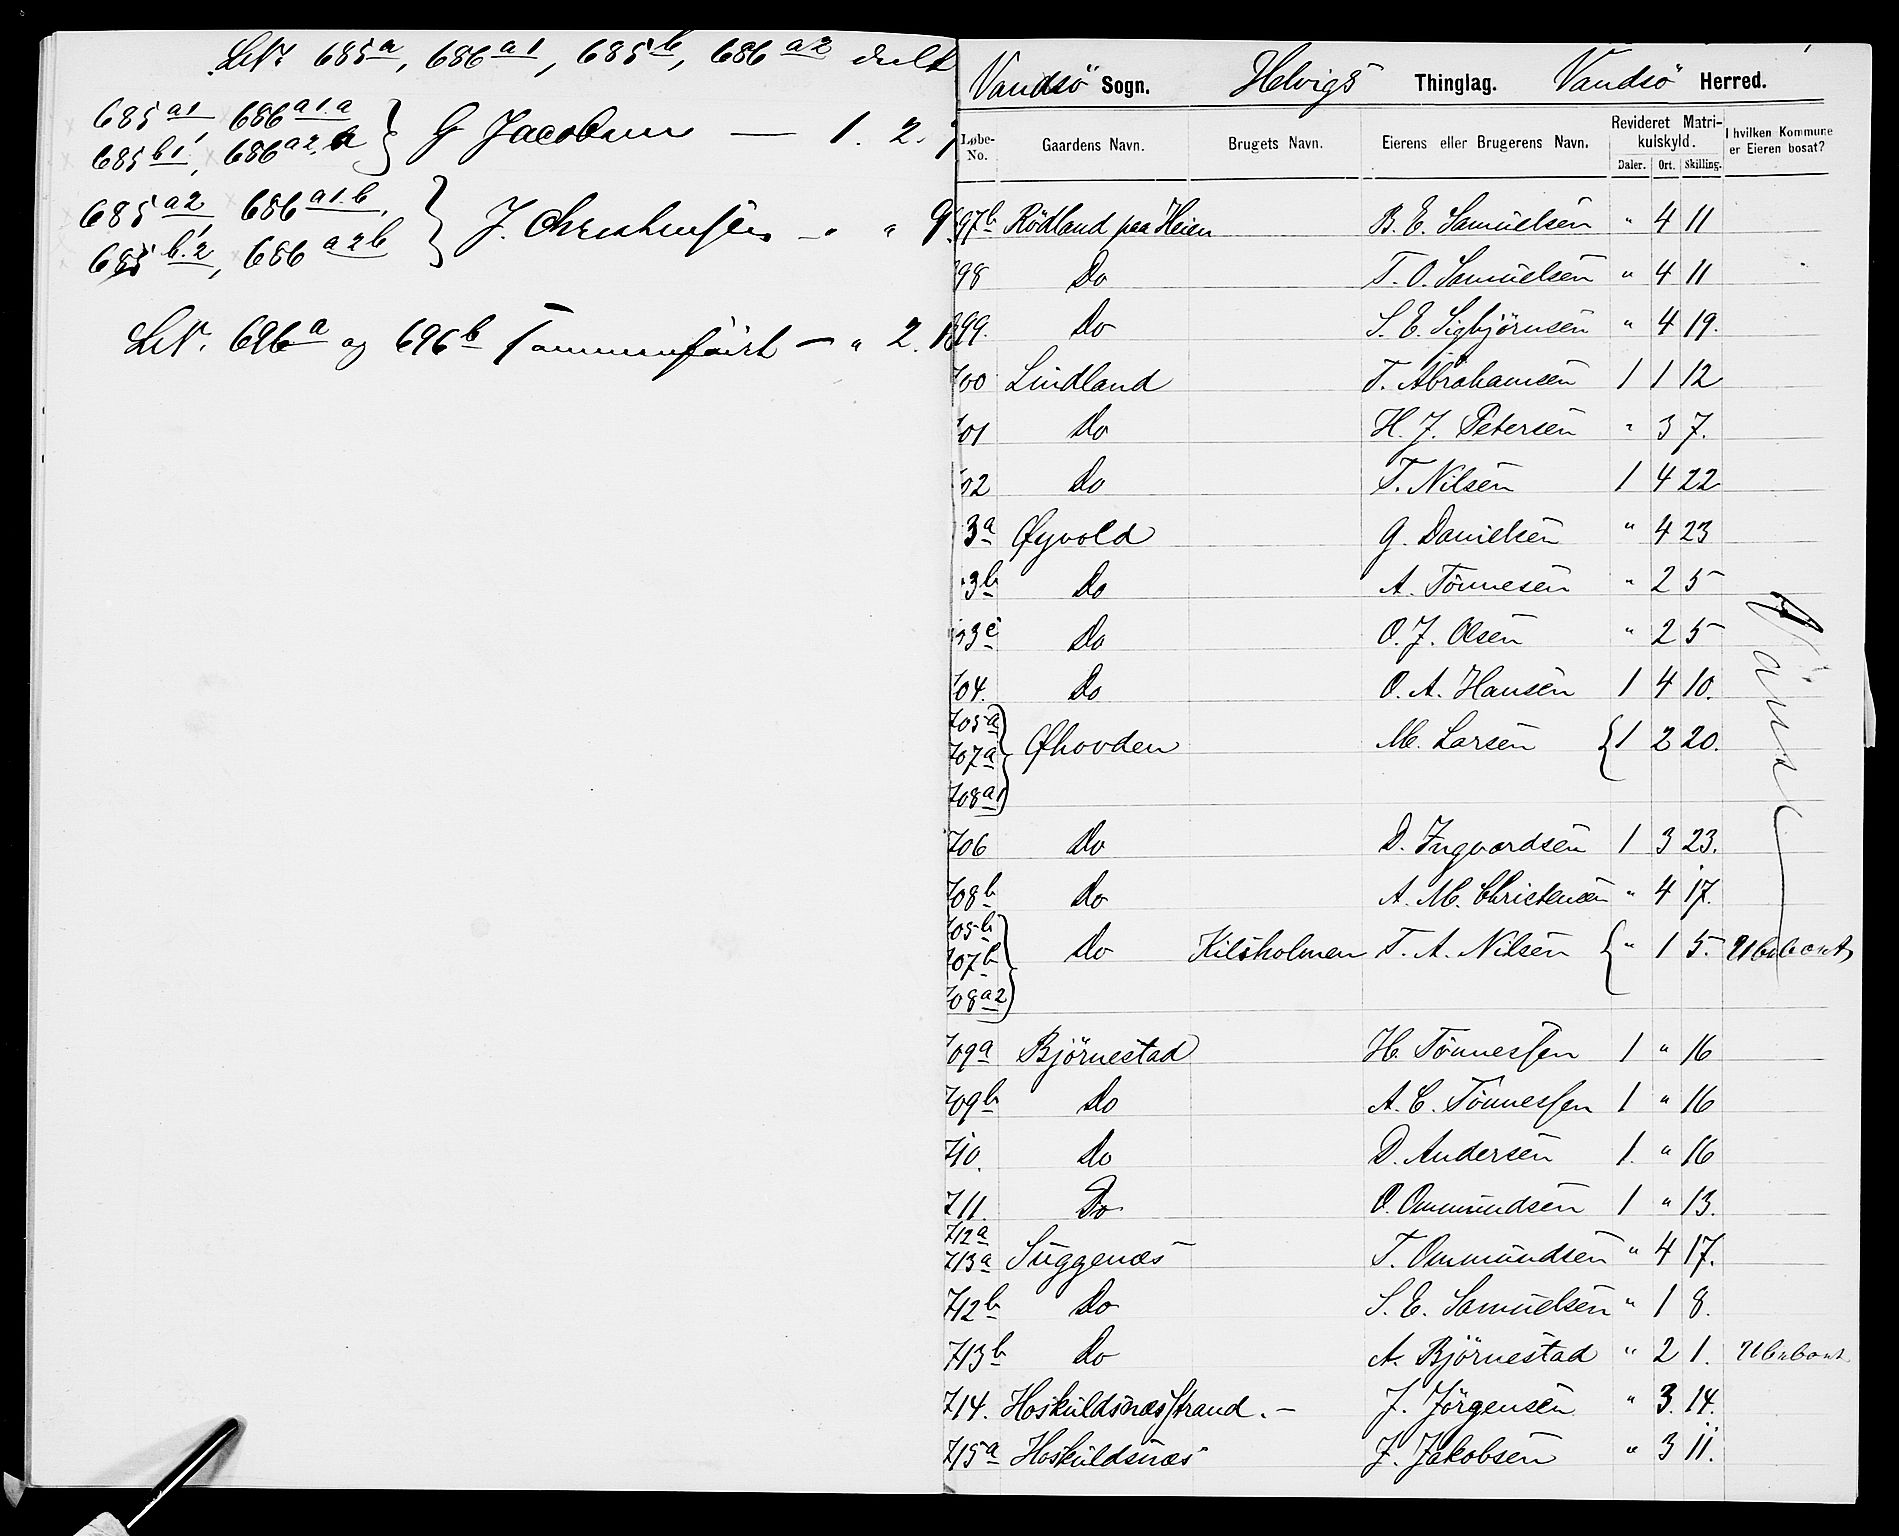 LNr 685a, 686a1, 685b, 686a2 delt
685a1, 686a1.a
685b1, 686a2.a } G Jacobsen — 1. 2.
685a2, 686a1.b,
685b.2, 686a2b } J. Christensen - " 9
LNr. 696a og 696b Sammenføiet — " 2.
Vandsö Sogn. Helvigs Thinglag. Vandsö Herred.
Løbe-No. Gaardens Navn. Brugets Navn. Eierens eller Brugerens Navn. Revideret Matrikulskyld. Daler. Ort. Skilling. I hvilken Kommune er Eieren bosat?
97b Rödland paa Heien B. E. Samuelsen " 4 11
98 Do T. O. Samuelsen " 4 11
99. Do S. E. Sigbjörnsen " 4 19.
700 Lindland T. Abrahamsen 1 1 12
01 Do H. J. Petersen " 3 7.
02 Do T. Nilsen 1 4 22
3a Øyvold G. Danielsen " 4 23
3b Do A. Tönnesen " 2 5
3c Do O. J. Olsen " 2 5
04. Do O. A. Hansen 1 4 10.
705a
707a Øhovden M. Larsen { 1 2 20.
708a1
706 Do D. Ingvardsen 1 3 23.
708b Do A. M. Christensen " 4 17.
705b
707b Do Kilsholmen T. A. Nilsen { " 1 5. Ubeboet
708a2
709a Björnestad H. Tönnessen 1 " 16
709b Do A. C. Tönnessen 1 " 16
710. Do D. Andersen 1. " 16
711. Do O. Ommundsen 1 " 13.
712a
713a Suggenæs T. Ommundsen " 4 17.
712b Do S. E. Samuelsen " 1 8.
713b Do A. Björnestad " 2 1. Ubeboet
714. Hoskuldsnæs Strand. - J. Jörgensen " 3. 14.
715a Hoskuldsnæs J. Jakobsen " 3 11.